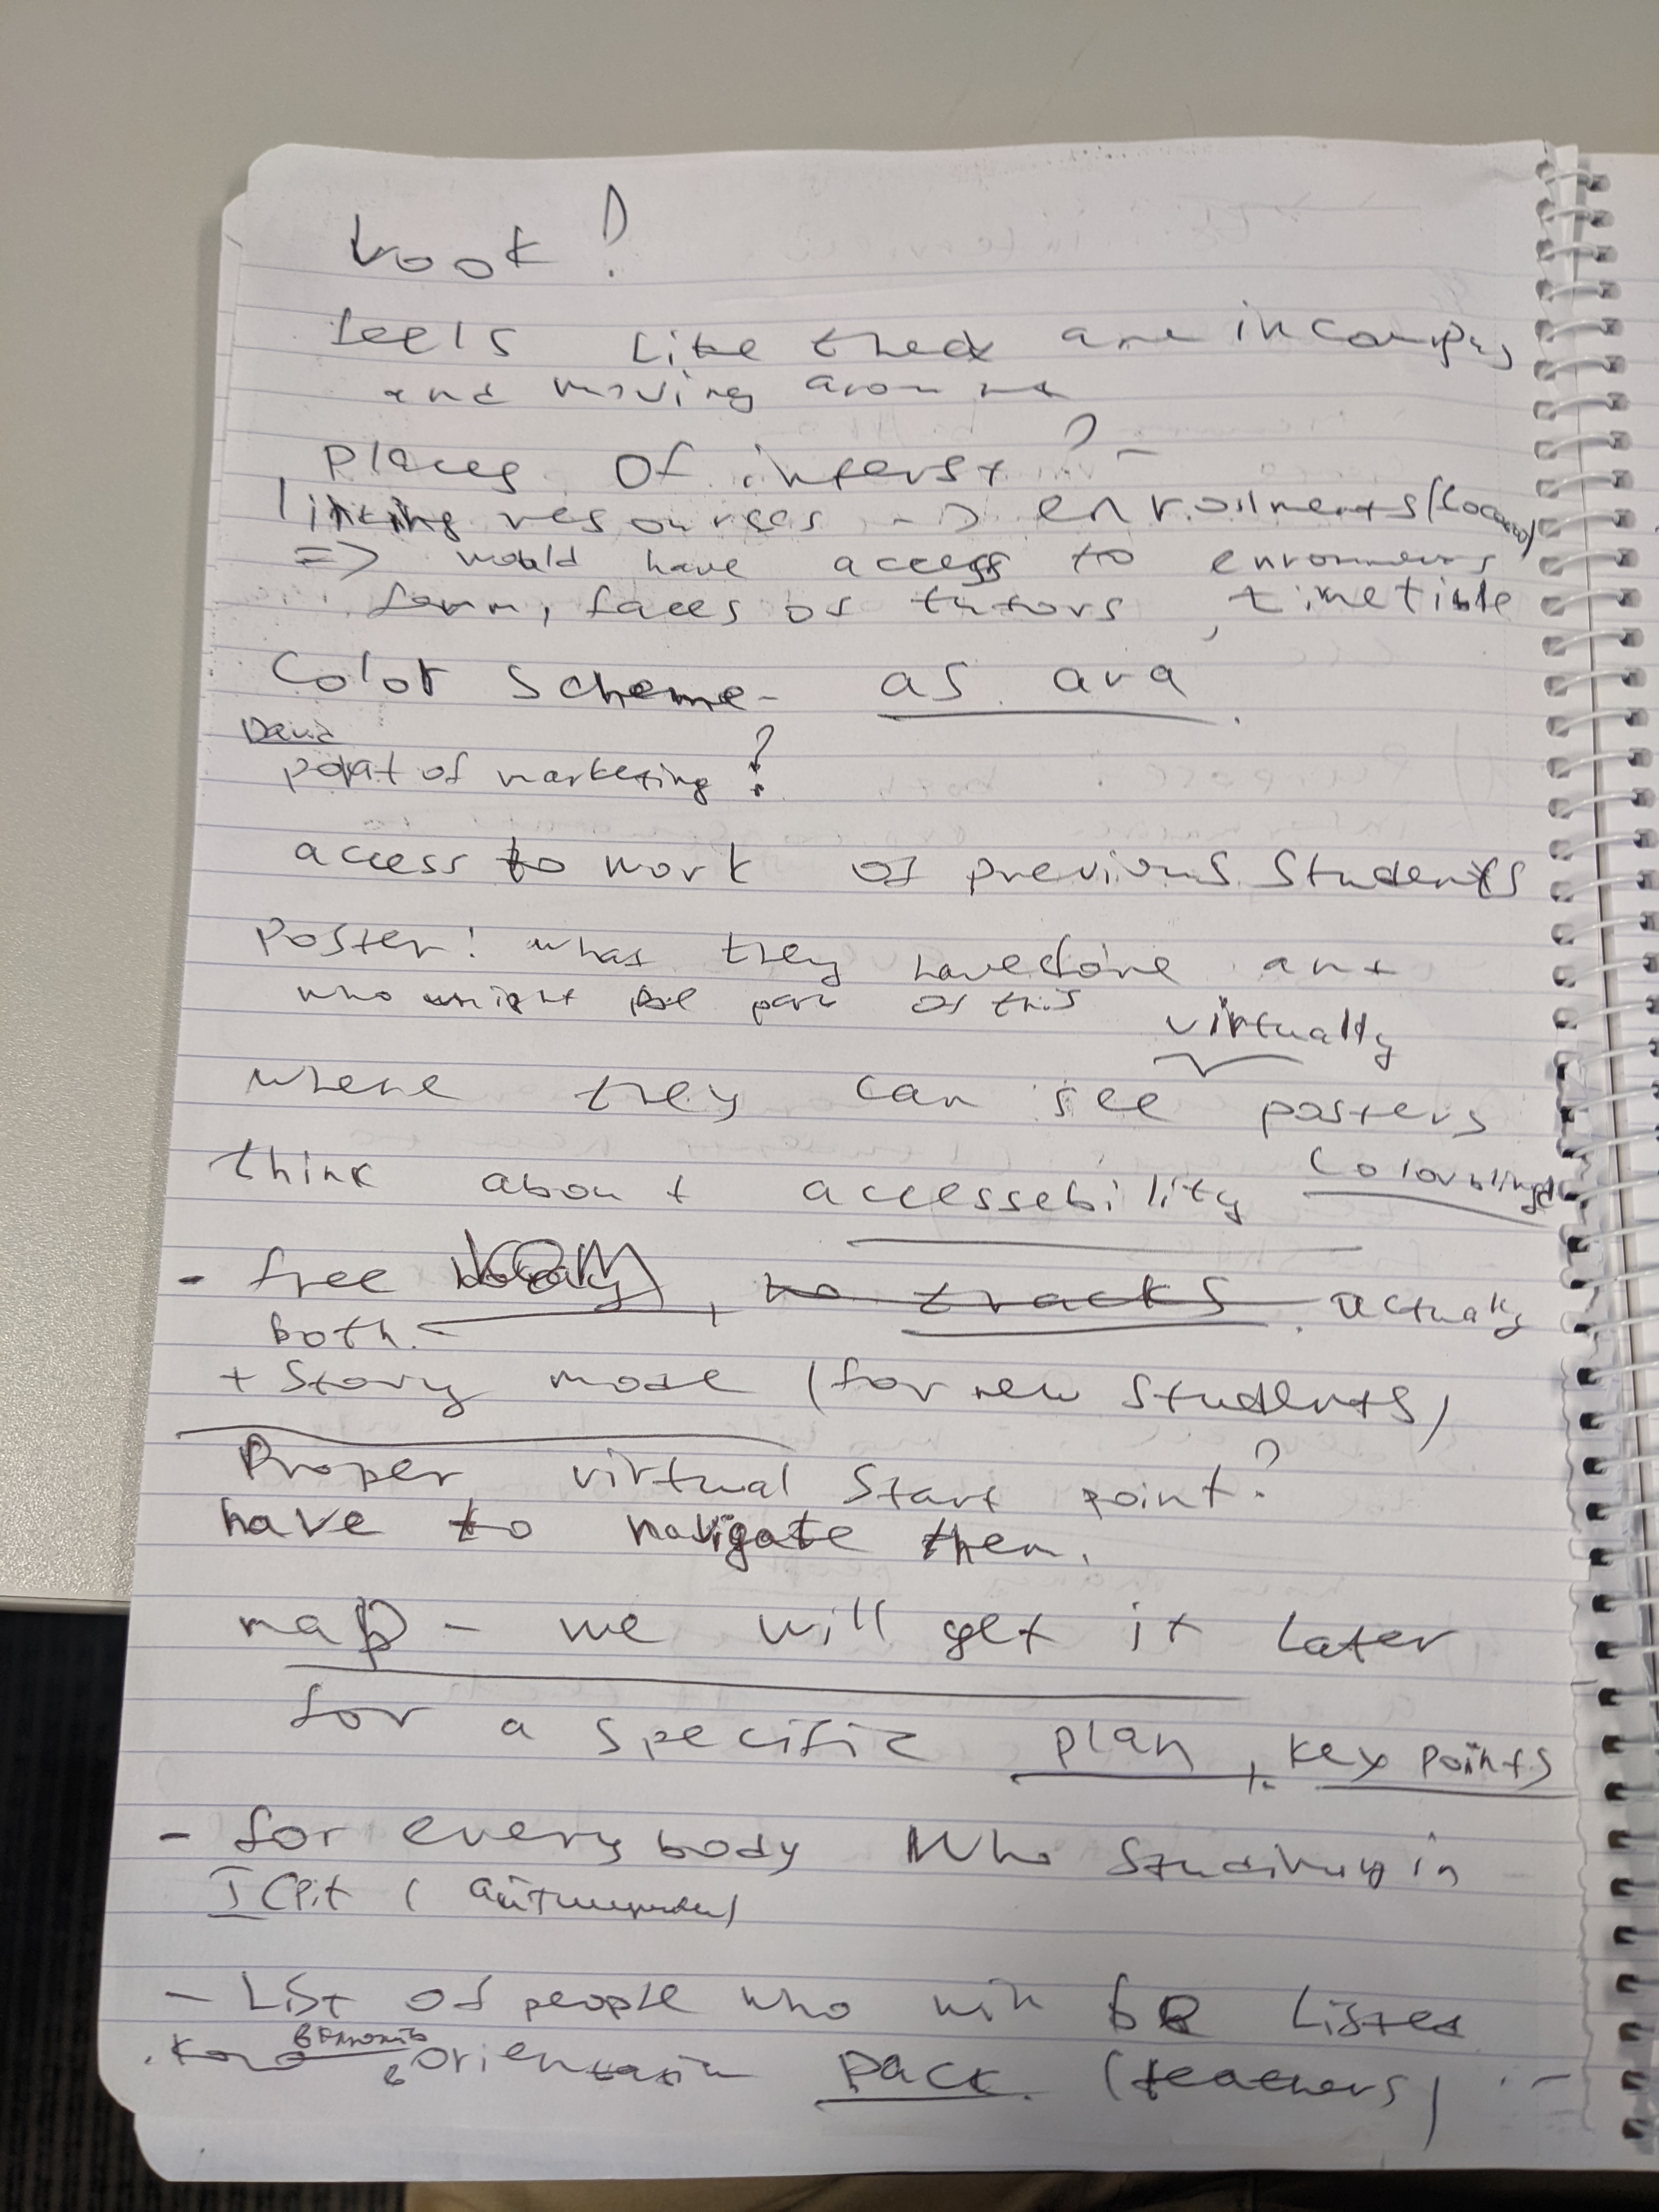 Look?
feels like they are in campus
and moving around
places of interst? -
linking resourses -> enviroilments/
=> would have access to
form, faces of tutors, timetible
Color scheme - as ara
David
point of marketing?
access to work of previous students
Poster: what they have done and
who might be part of this
virtually
where they can see posters
think about accessebility Colourblind
- free roam, no tracks. actually
both.
+ Story mode (for new students)
Proper virtual Start point?
have to navigate them.
map - we will get it later
for a specific plan, key points
- for everybody who studiing in
ICPit (
- List of people who will be listed
кого включить
в orientation pack. (teachers)